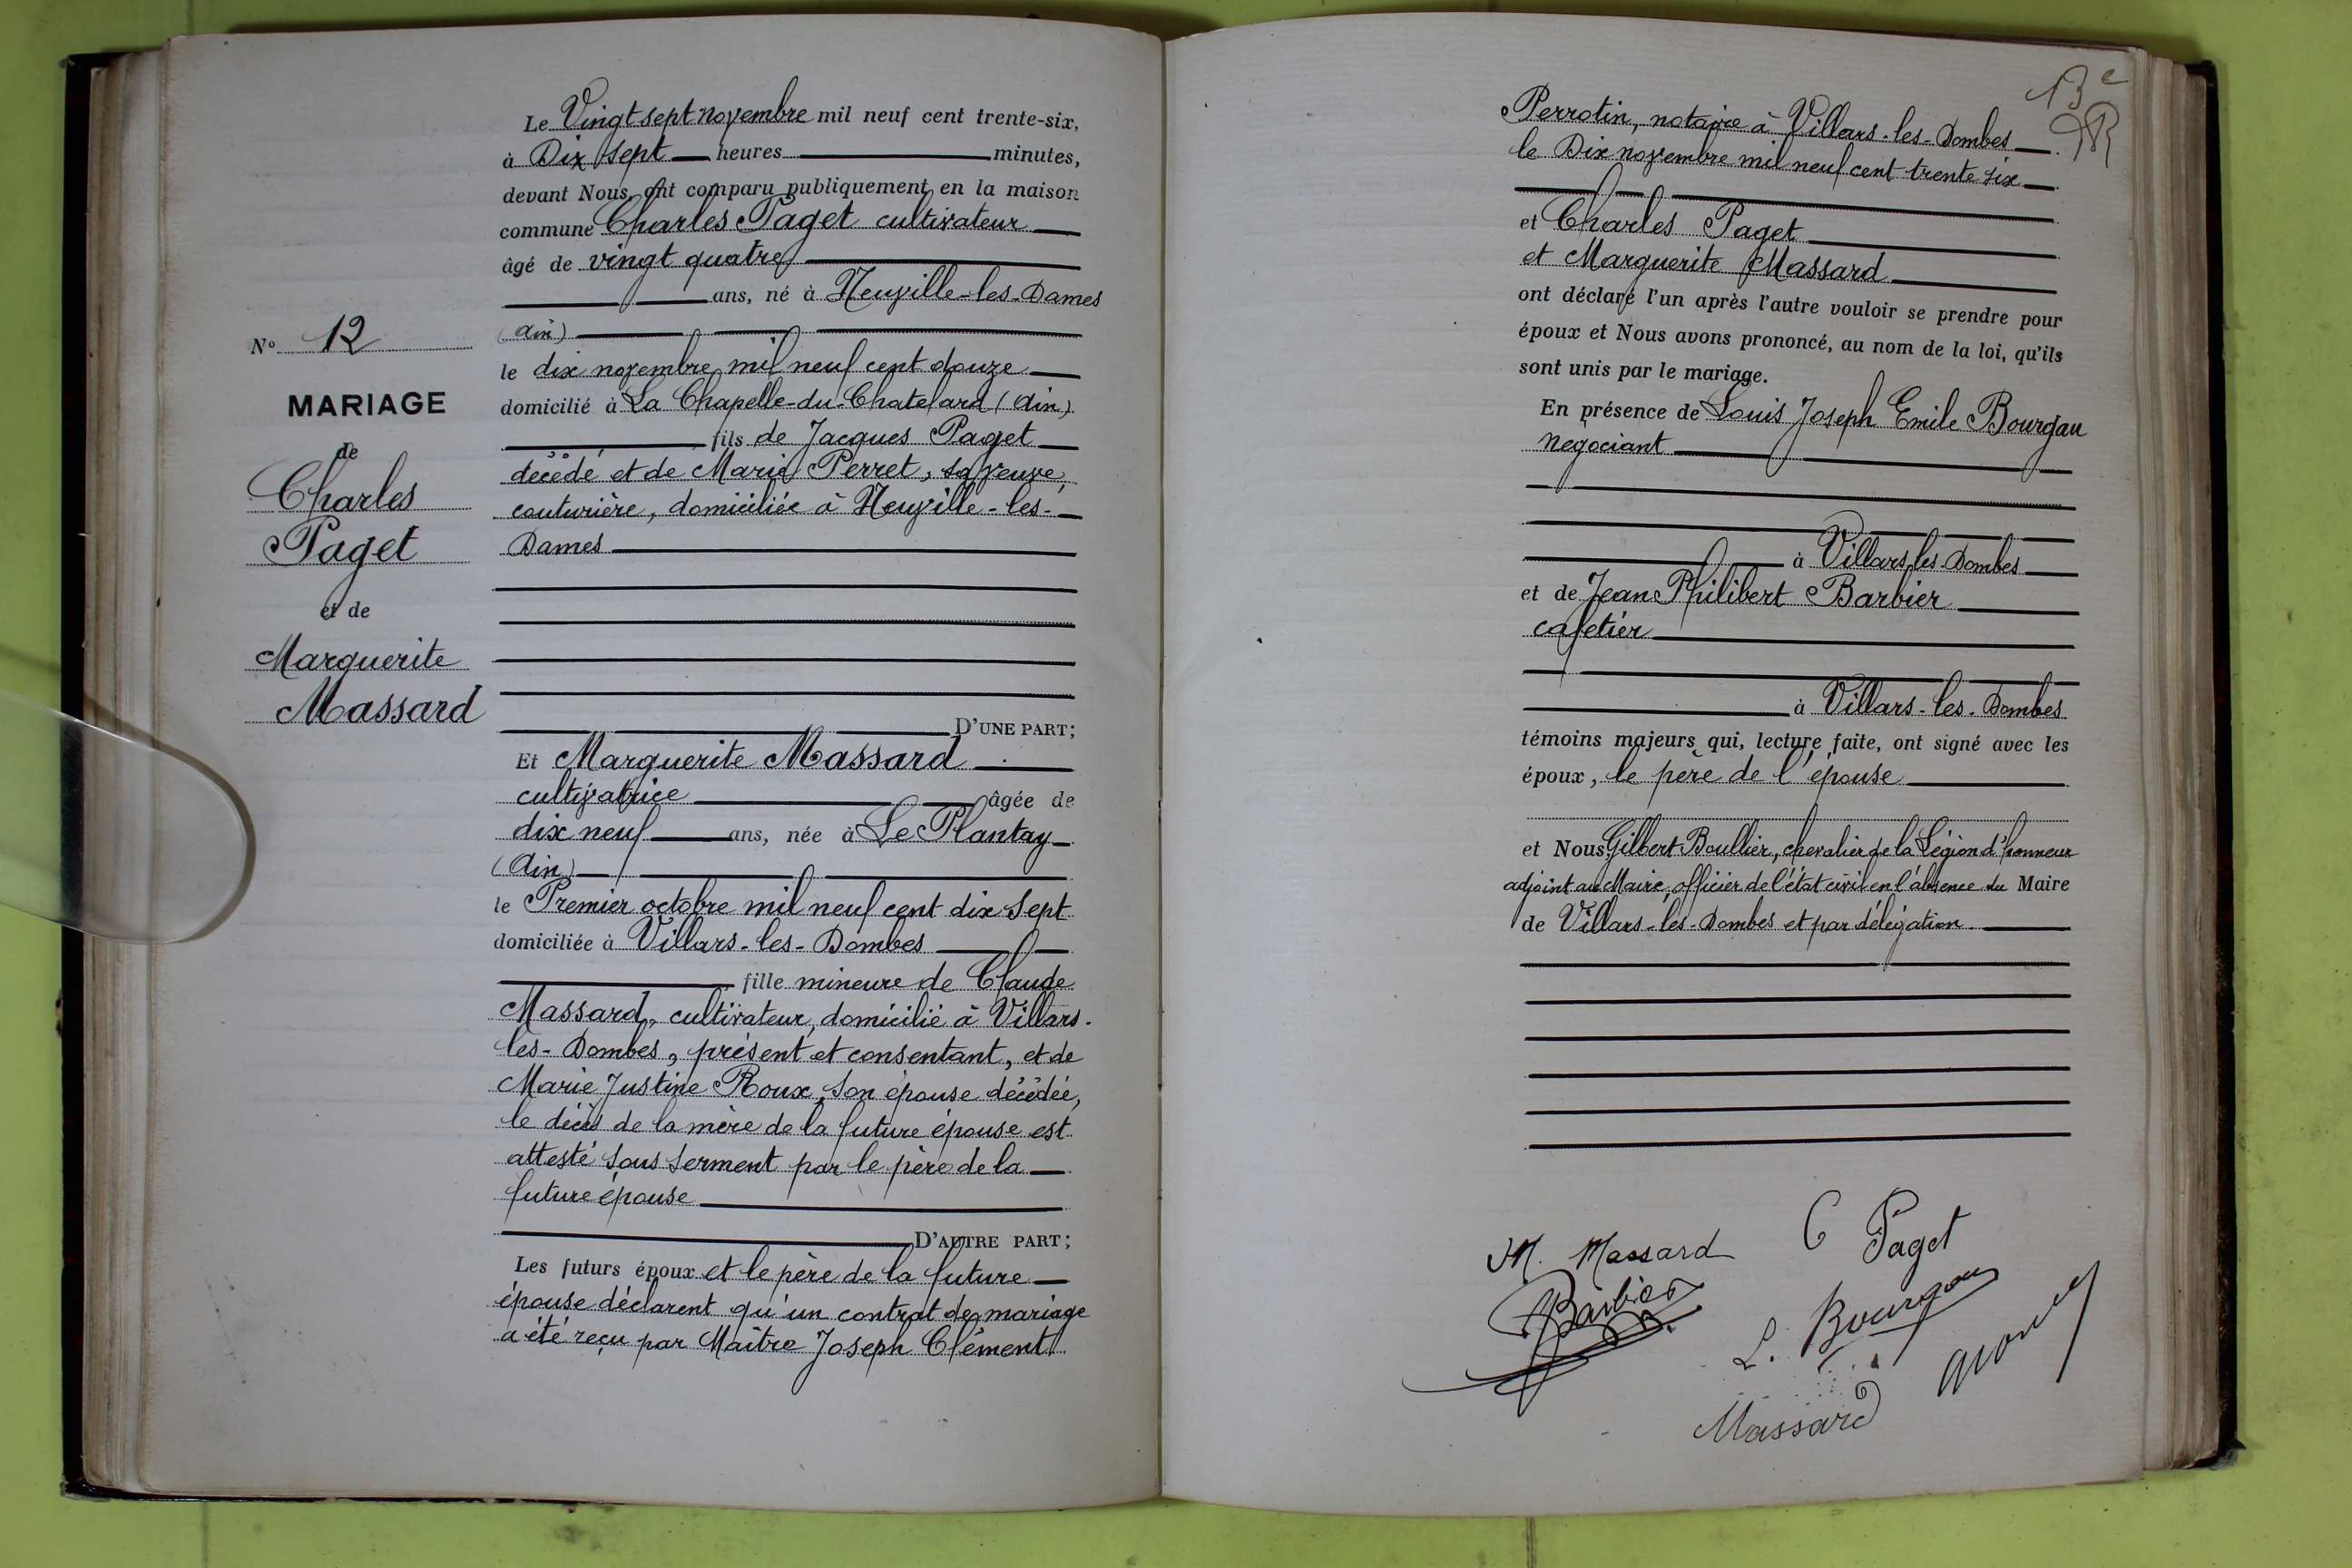 Le Vingt sept novembre mil neuf cent trente-six,
à Dix sept heures minutes,
devant Nous, ont comparu publiquement en la maison
commune Charles Paget cultivateur
âgé de vingt quatre
ans, né à Neuville-les-Dames
(Ain)
le dix novembre mil neuf cent douze
domicilié à La Chapelle-du-Chatelard (Ain)
fils de Jacques Paget
décédé et de Marie Perret, sa veuve,
couturière, domiciliée à Neuville-les-
Dames
D'UNE PART;
N° 12
MARIAGE
de
Charles
Paget
et de
Marguerite
Massard
Et Marguerite Massard
cultivatrice âgée de
dix neuf ans, née à Le Plantay
(Ain)
le Premier octobre mil neuf cent dix sept
domiciliée à Villars-les-Dombes
fille mineure de Claude
Massard, cultivateur, domicilié à Villars-
les-Dombes, présent et consentant, et de
Marie Justine Roux, son épouse décédée,
le décès de la mère de la future épouse est
attesté sous serment par le père de la
future épouse
D'AUTRE PART;
Les futurs époux et le père de la future
épouse déclarent qu'un contrat de mariage
a été reçu par Maître Joseph Clément
13e
Perrotin, notaire à Villars-les-Dombes
le Dix novembre mil neuf cent trente six
et Charles Paget
et Marguerite Massard
ont déclaré l'un après l'autre vouloir se prendre pour
époux et Nous avons prononcé, au nom de la loi, qu'ils
sont unis par le mariage.
En présence de Louis Joseph Emile Bourgau
négociant
à Villars les Dombes
et de Jean Philibert Barbier
cafetier
à Villars-les-Dombes
témoins majeurs qui, lecture faite, ont signé avec les
époux, le père de l'épouse
et Nous Gilbert Boullier, chevalier de la Légion d'honneur
adjoint au Maire, officier de l'état civil en l'absence du Maire
de Villars-les-Dombes et par délégation.
M. Massard C Paget
Barbier
L. Bourgau
Massard